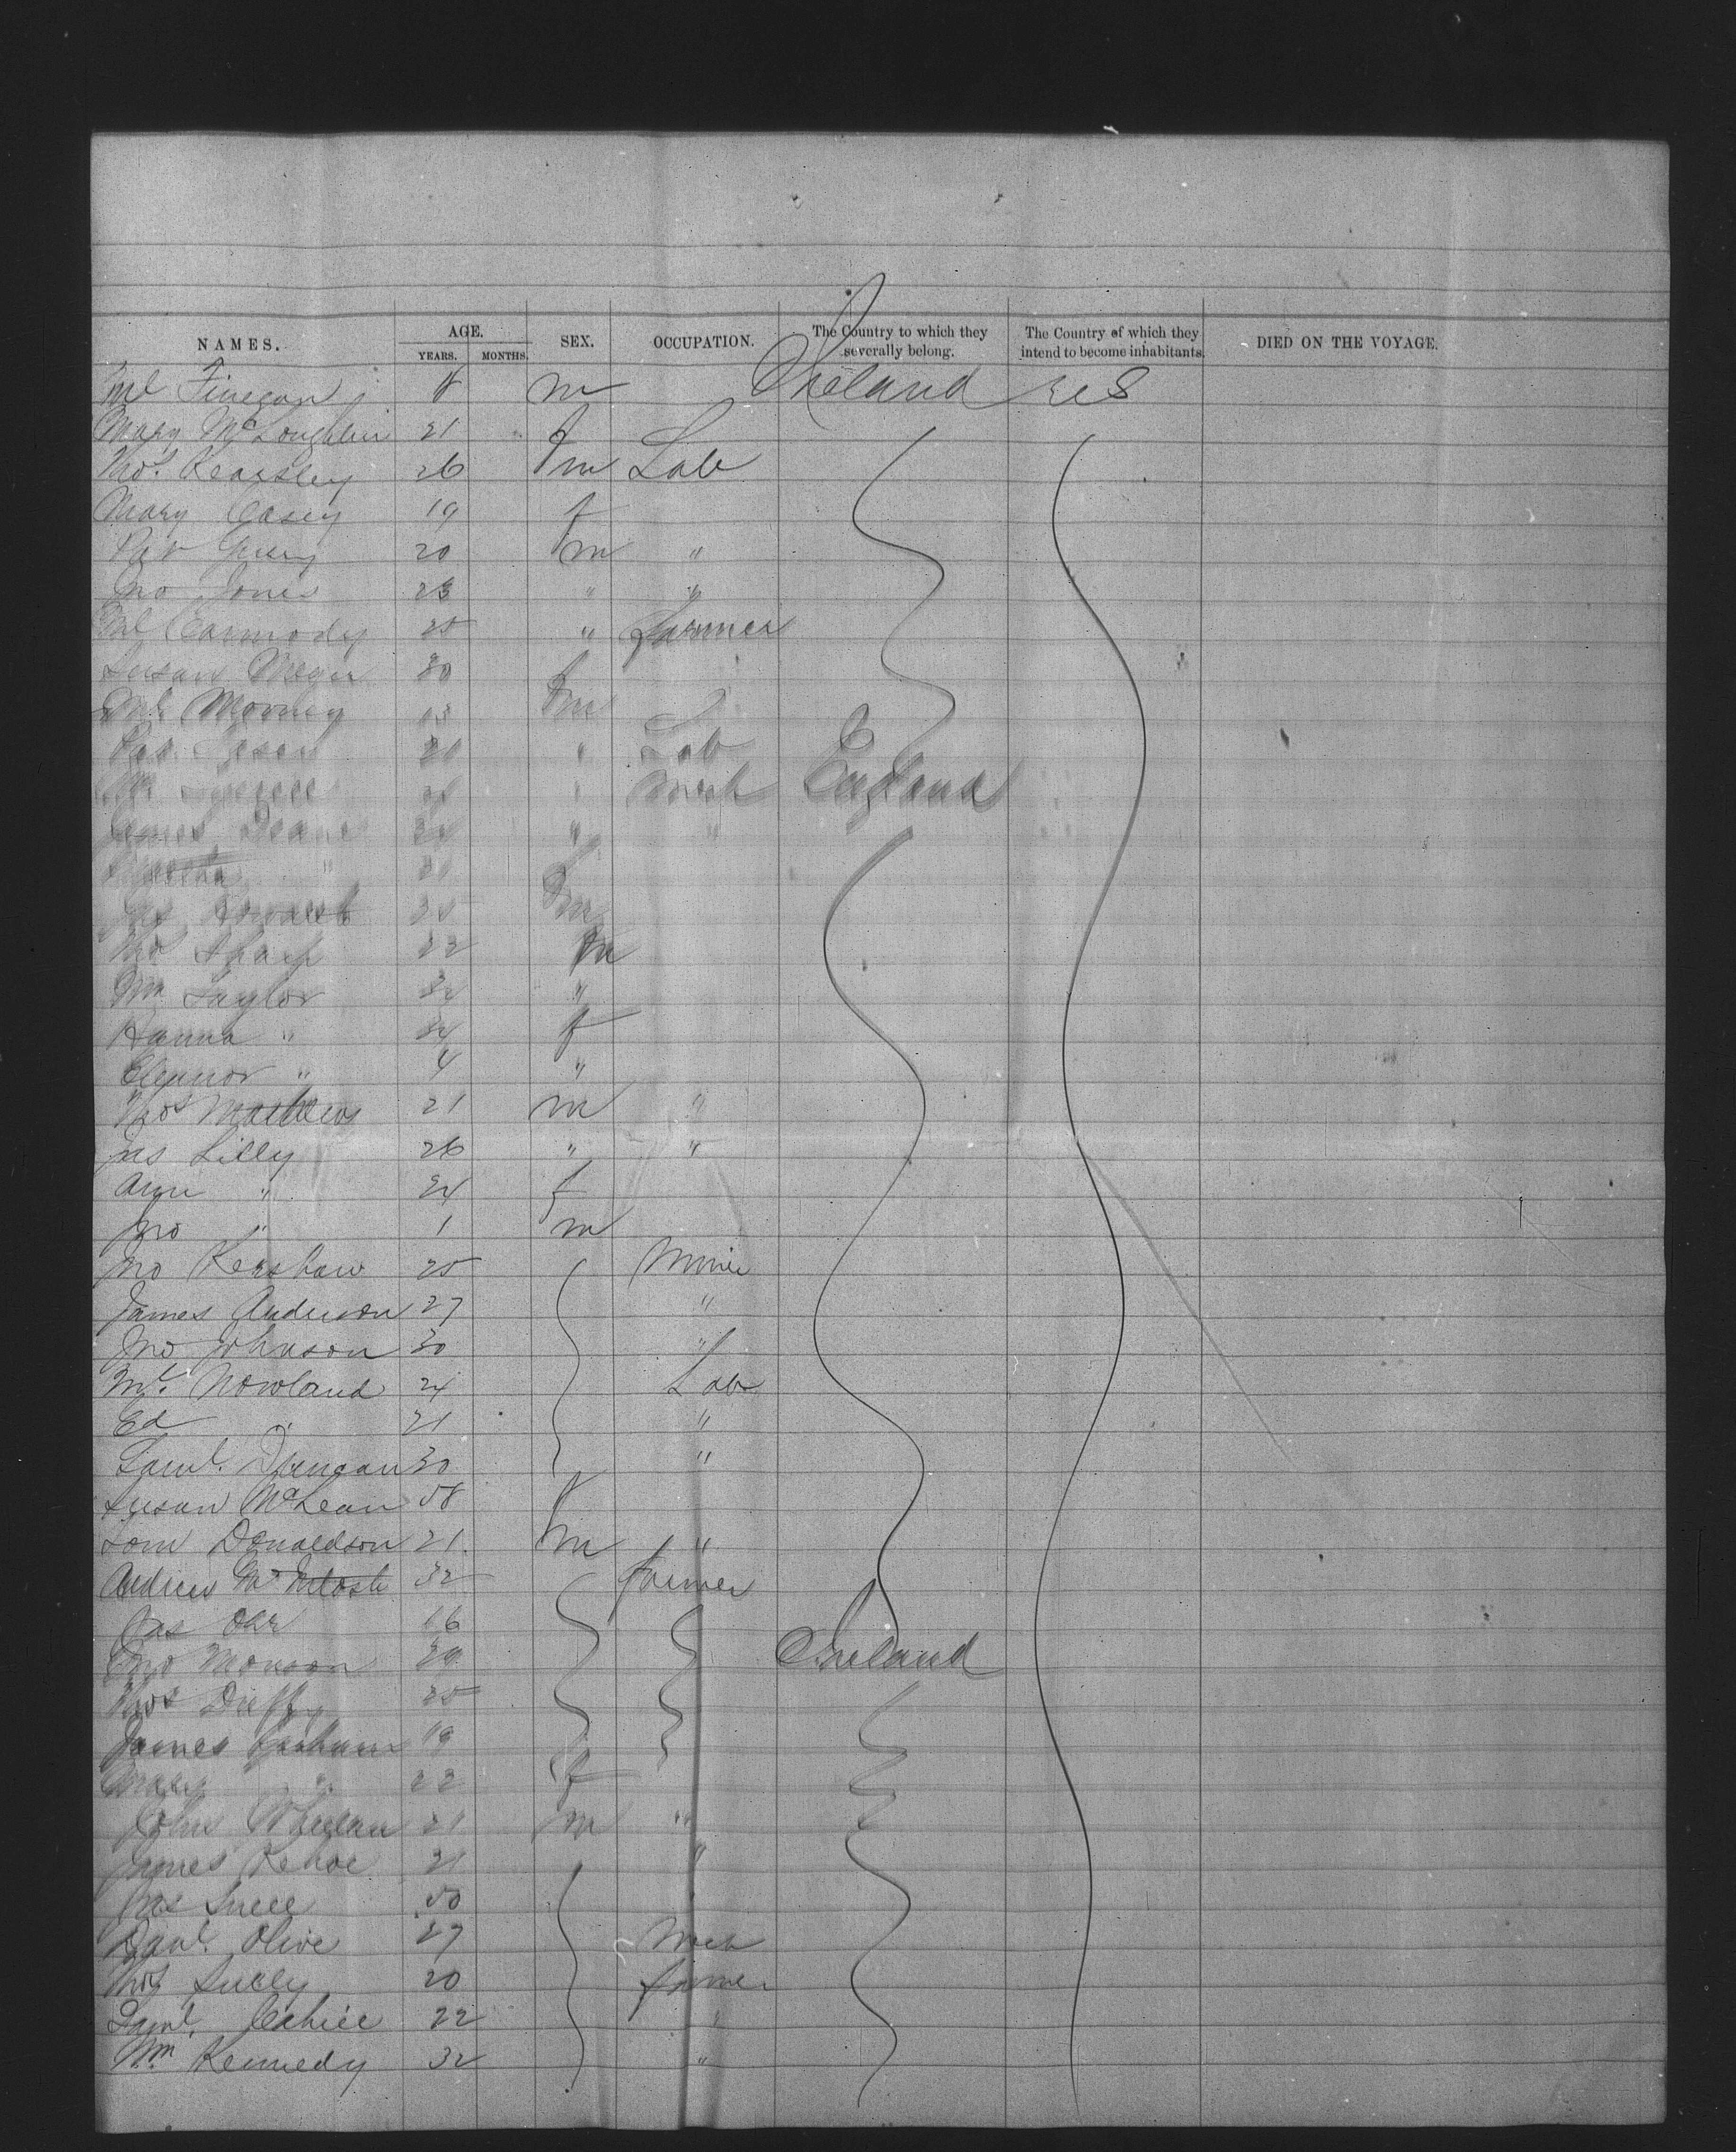 NAMES. AGE. YEARS. MONTHS. SEX. OCCUPATION. The Country to which they severally belong. The Country of which they intend to become inhabitants. DIED ON THE VOYAGE.
Ml Finegan 8 m Ireland US
Mary McLoughlin 21 f
Thos. Kearsley 26 m Lab
Mary Casey 19 f
Pat 20 m "
Jno Jones 23 " "
Ml Carmody 25 " Farmer
Susan 30 f
Ml Mooney 13 m
21 " Lab
" Mech England
James Deane " "
" 21 f
Jas m
Thos Sharp 22 m
Wm Taylor 32 "
Hanna " 24 f
Eleanor " 4 "
Thos Mathews 21 m "
Jas Lilly 26 " "
Ann " 24 f
Jno " 1 m
Jno Kershaw 25 Miner
James Anderson 27 "
Jno Johnson 30 "
Ml. Nowland 24 Lab
Ed " 21 "
Saml. Duncan 30 "
Susan McLean 58 f
Tom Donaldson 21 m "
Andrew McIntosh 32 Farmer
Jas Orr 16
Jno Monson 29 Ireland
Thos Duffy 25
James Graham 19
Mary " 22 f
John Whelan 21 m "
James Kehoe 21 "
Jas Snell 50
Danl. Olive 27 Mech
Thos Sully 20 farmer
Danl. Cahill 22 "
Wm Kennedy 32 "